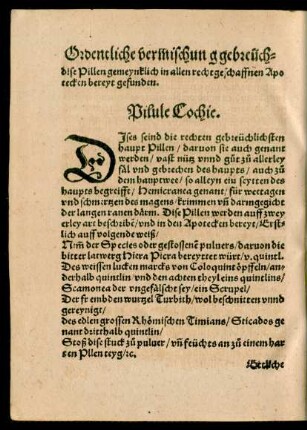 Ordentliche vermischung gebreüch-
dise Pillen gemeynklich in allen rechtgeschaffnen Apo
tecken bereyt gefunden.
Pilule Cochie.
DIses seind die rechten gebreüchlichsten
haupt Pillen/ daruon sie auch genant
werden/ vast nütz vnnd gůt zů allerley
fäl vnd gebrechen des haupts/ auch zů
dem hauptwee/ so alleyn ein seytten des
haupts begreifft/ Hemicranea genant/ für wettagen
vnd schmertzen des magens/ krimmen vn̄ darmgicht
der langen ranen därm. Dise Pillen werden auff zwey
erley art beschribē/ vnd in den Apotecken bereyt/ Erst-
lich auff volgende weiß/
Nim̄ der Species oder gestossenē puluers/ daruon die
bitter latwerg Hiera Picra bereyttet würt/ v. quintl.
Des weissen lucken marcks von Coloquint öpffeln/ an-
derhalb quintlin vnd den achten theyl eins quintlins/
Scamonea der vngefälscht sey/ ein Scrupel/
Der frembden wurzel Turbith/ wol beschnitten vnnd
gereynigt/
des edlen grossen Rhömischen Timians/ Sticados ge
nant dritthalb quintlin/
Stoß dise stuck zů puluer/ vn̄ feüchts an zů einem har
ten Pllen teyg/ ꝛc.
Etliche